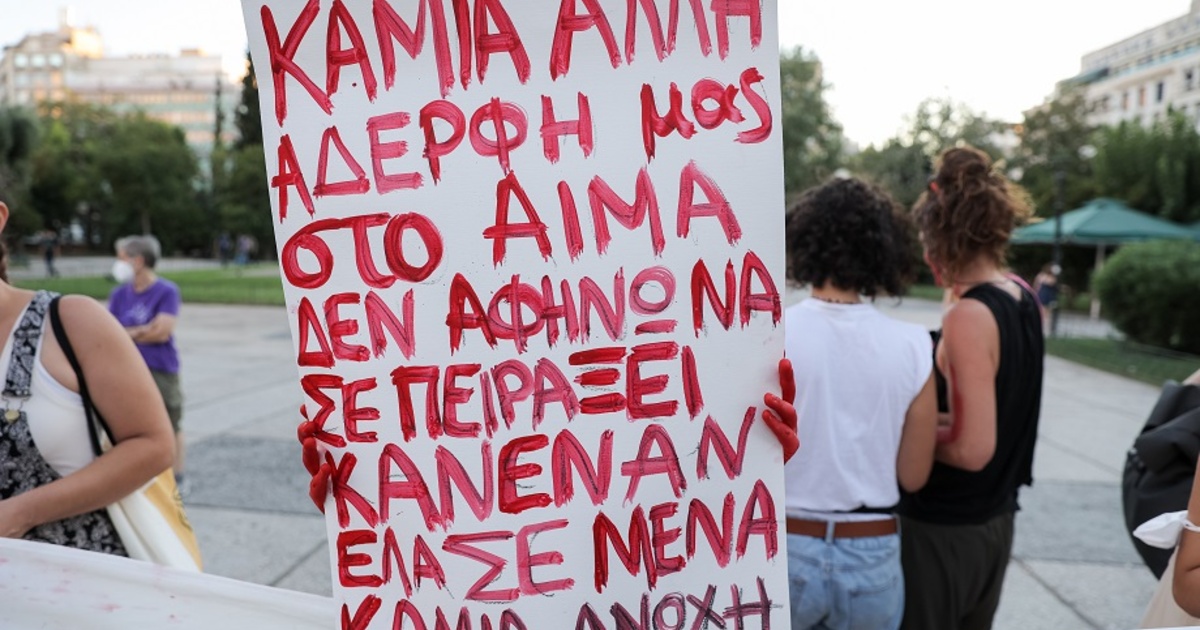 ΚΑΜΙΑ ΑΛΛΗ
ΑΔΕΡΦΗ μας
στο ΑΙΜΑ
ΔΕΝ ΑΦΗΝΩ ΝΑ
ΣΕ ΠΕΙΡΑΞΕΙ
ΚΑΝΕΝΑΝ
ΕΛΑ ΣΕ ΜΕΝΑ
ΚΑΜΙΑ ΑΝΟΧΗ